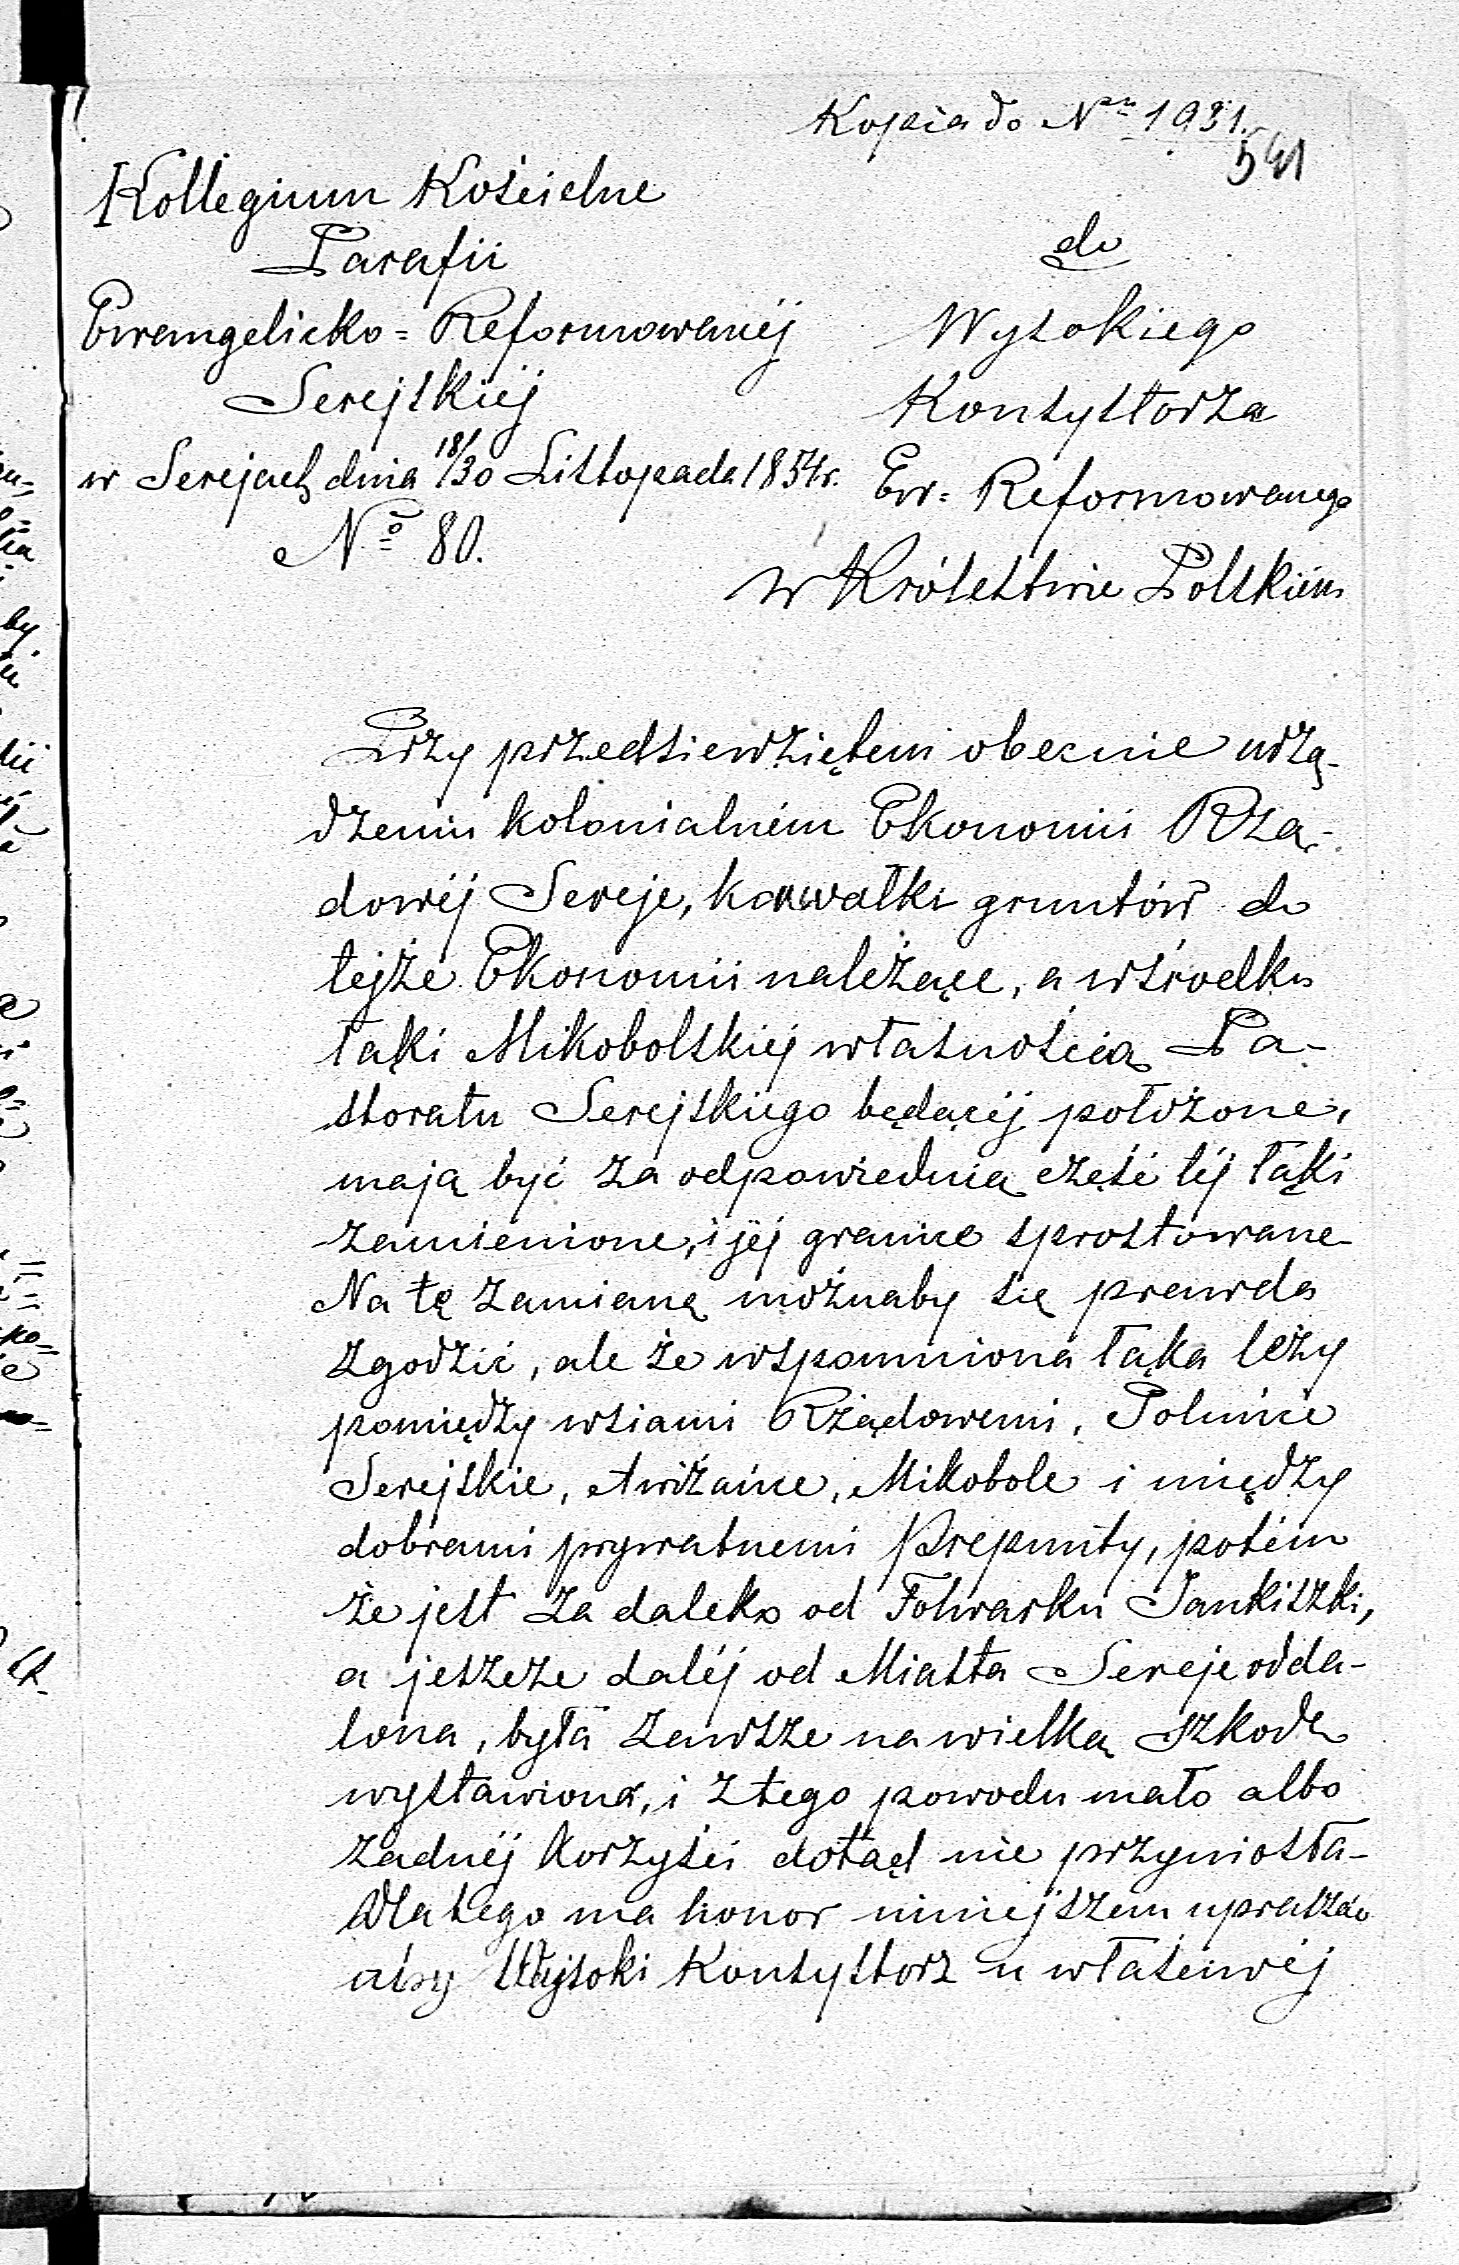 Kopia do Nru 1931.
541
Kollegium Kościelne
Parafii
Ewangelicko=Reformowanéj
Serejskiéj
w Serejach dnia 18/30 Listopada 1854r.
No 80.
do
Wysokiego
Konsystorza
Ew=Reformowanego
w Królestwie Polskiém
Przy przedsiewziętem obecnie urzą-
dzeniu kolonialném Ekonomii Rzą-
dowéj Sereje, kawałki gruntów do
tejże Ekonomii należące, a wśrodku
łąki Mikobolskiéj własnością Pa-
storatu Serejskiego będącéj położone,
mają być za odpowiednią część téj łąki
zamienione, i jéj granice sprostowane
Na tę zamianę możnaby się prawda
zgodzić, ale że wspomniona łąka leży
pomiędzy wsiami Rządowemi, Poluńce
Serejskie, Awiżańce, Mikobole i między
dobrami prywatnemi Prepunty, potém
że jest za daleko od Folwarku Jankiszki,
a jeszcze daléj od Miasta Sereje odda-
lona, była zawsze na wielką szkodę
wystawiona, i z tego powodu mało albo
żadnéj korzyści dotąd nie przyniosła-
Dlatego ma honor niniejszem upraszać
aby Wysoki Konsystorz u właściwéj